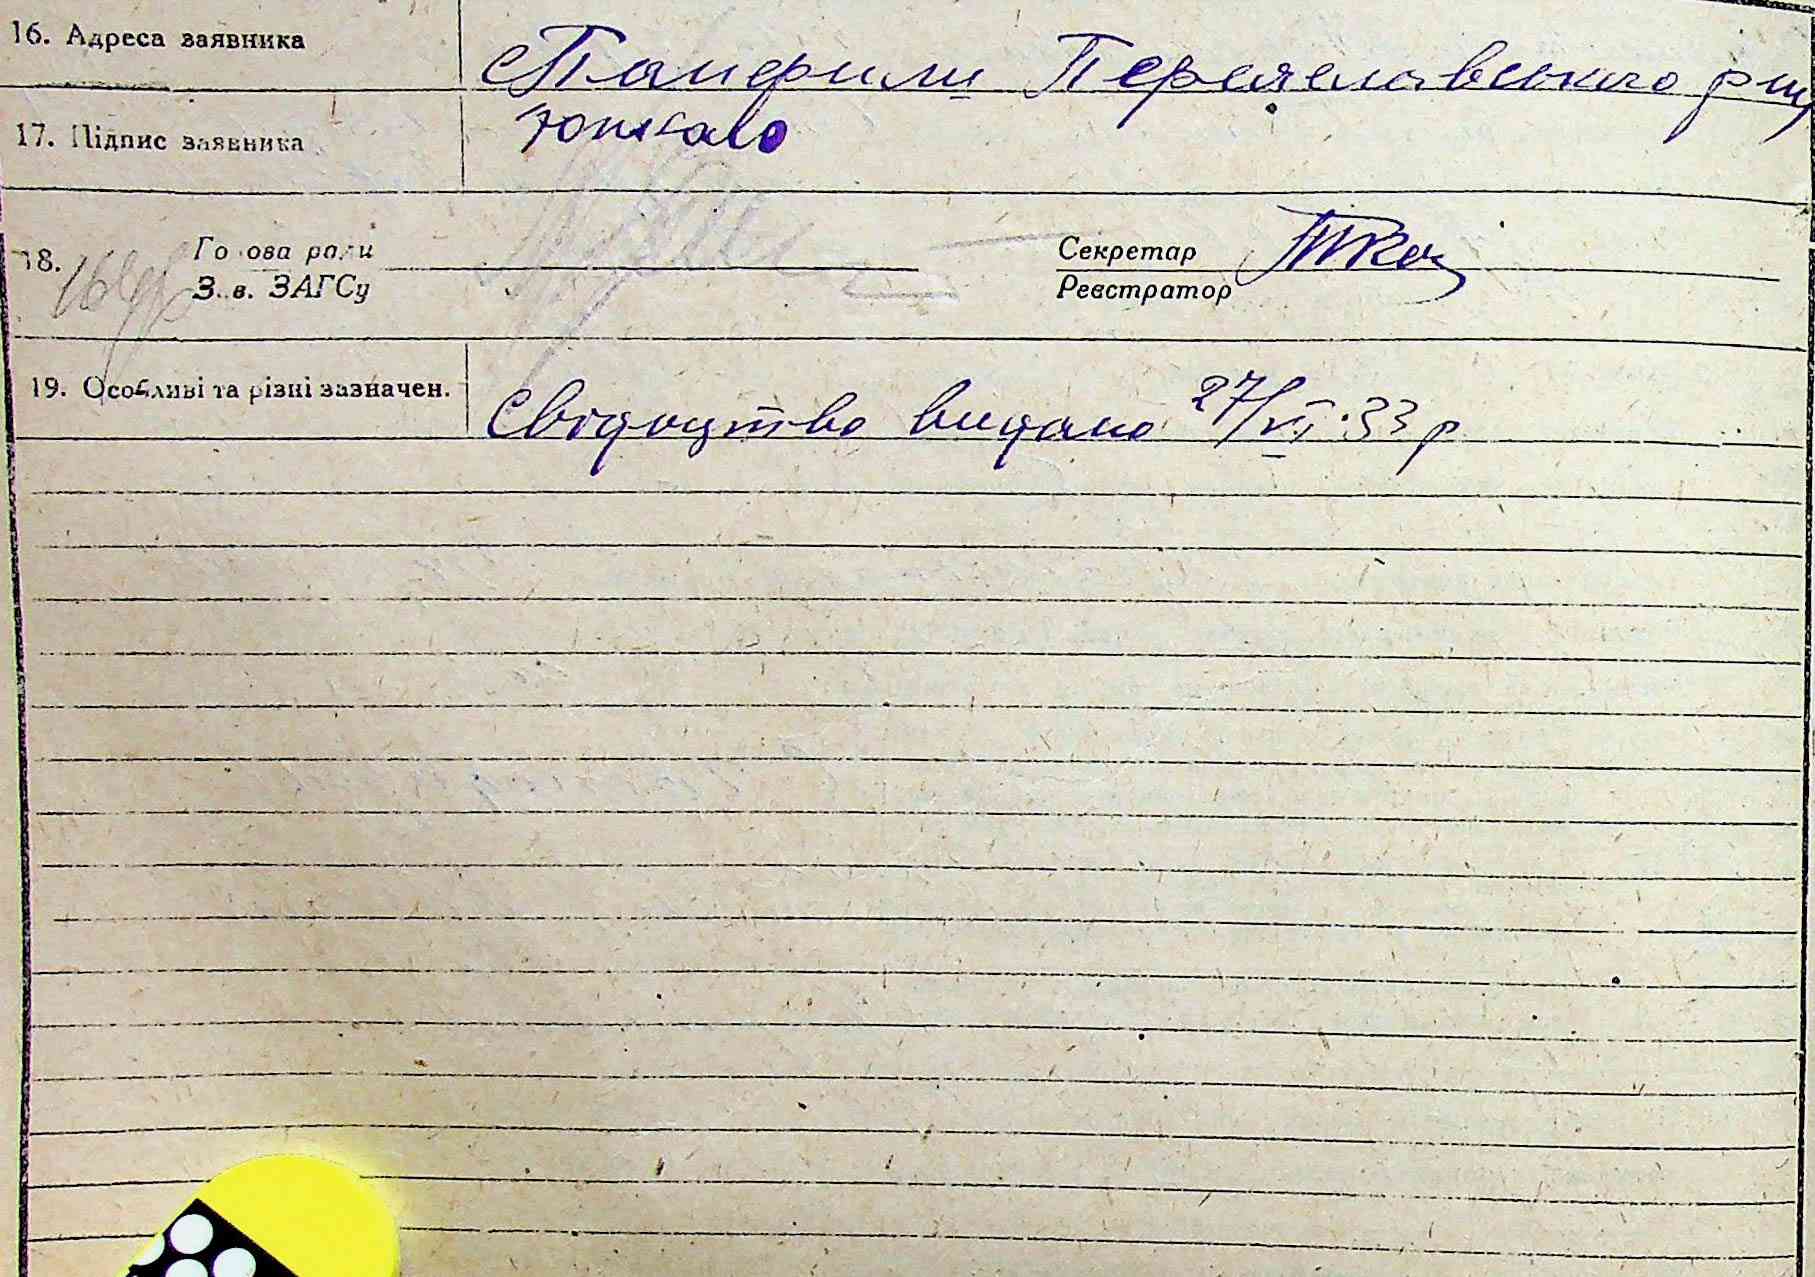 16. Адреса заявника с Панфили Переяславського р-ну
17. Підпис заявника
18. Голова ради Секретар
Зав. ЗАГСу Реєстратор
19. Особливі та різні зазначен. Свідоцтво видано 27/VI-33 р